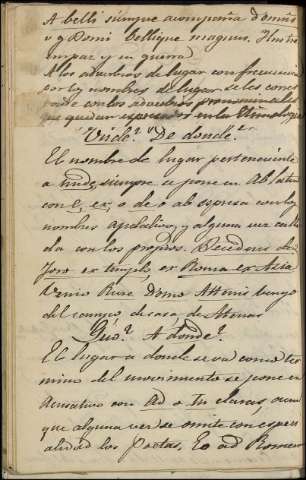 A belli siempre acompaña Domi
v g Domi bellique magnus. Ilustre
en paz y en guerra
A los adverbios de lugar con frecuencia
por los nombres de lugar se les corres
ponde con los adverbios pronominales
que quedan espresados en la Etimologia
"Unde?" "De donde?"
El nombre de lugar perteneciente
a unde, siempre se pone en Ablativo
con e, ex, o de o ab espresa con los
nombres apelativos, y alguna vez calla
da con los propios. Decedens de
foro ex templo, ex Roma ex Asia
Venio Rure Domo Athenis vengo
del campo, de casa, de Atenas
Quo? A donde?
El lugar a donde se va como ter
mino del movimiento se pone en
Acusativo con Ad o In claras, aun
que alguna vez se omite con espe
alidad los Poetas, Eo ad Romam